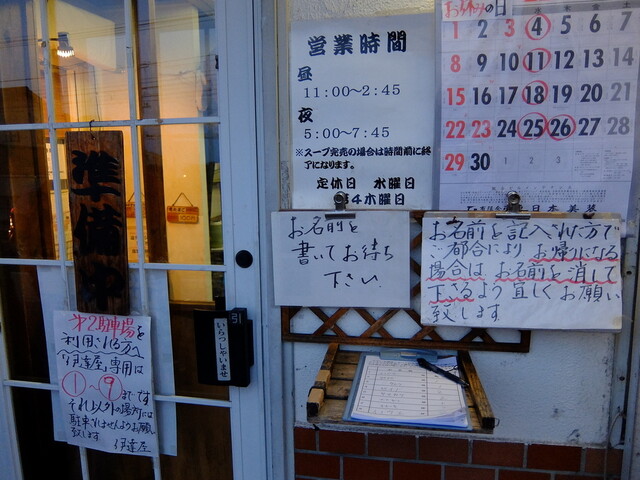 準備中
第2駐車場を
利用される方へ
「伊達屋」専用は
①〜⑨まで です
それ以外の場所には
駐車しませんようお願い
致します
伊達屋
引
いらっしゃいませ
営業時間
昼
11:00〜2:45
夜
5:00〜7:45
※スープ完売の場合は時間前に終
了になります。
定休日 水曜日
第4木曜日
お休みの日
1 2 3 4 5 6 7
8 9 10 11 12 13 14
15 16 17 18 19 20 21
22 23 24 25 26 27 28
29 30 1 2 3
お名前を
書いてお待ち
下さい
お名前を記入された方で
ご都合により お帰りになる
場合は お名前を消して
下さるよう宜しくお願い
致します